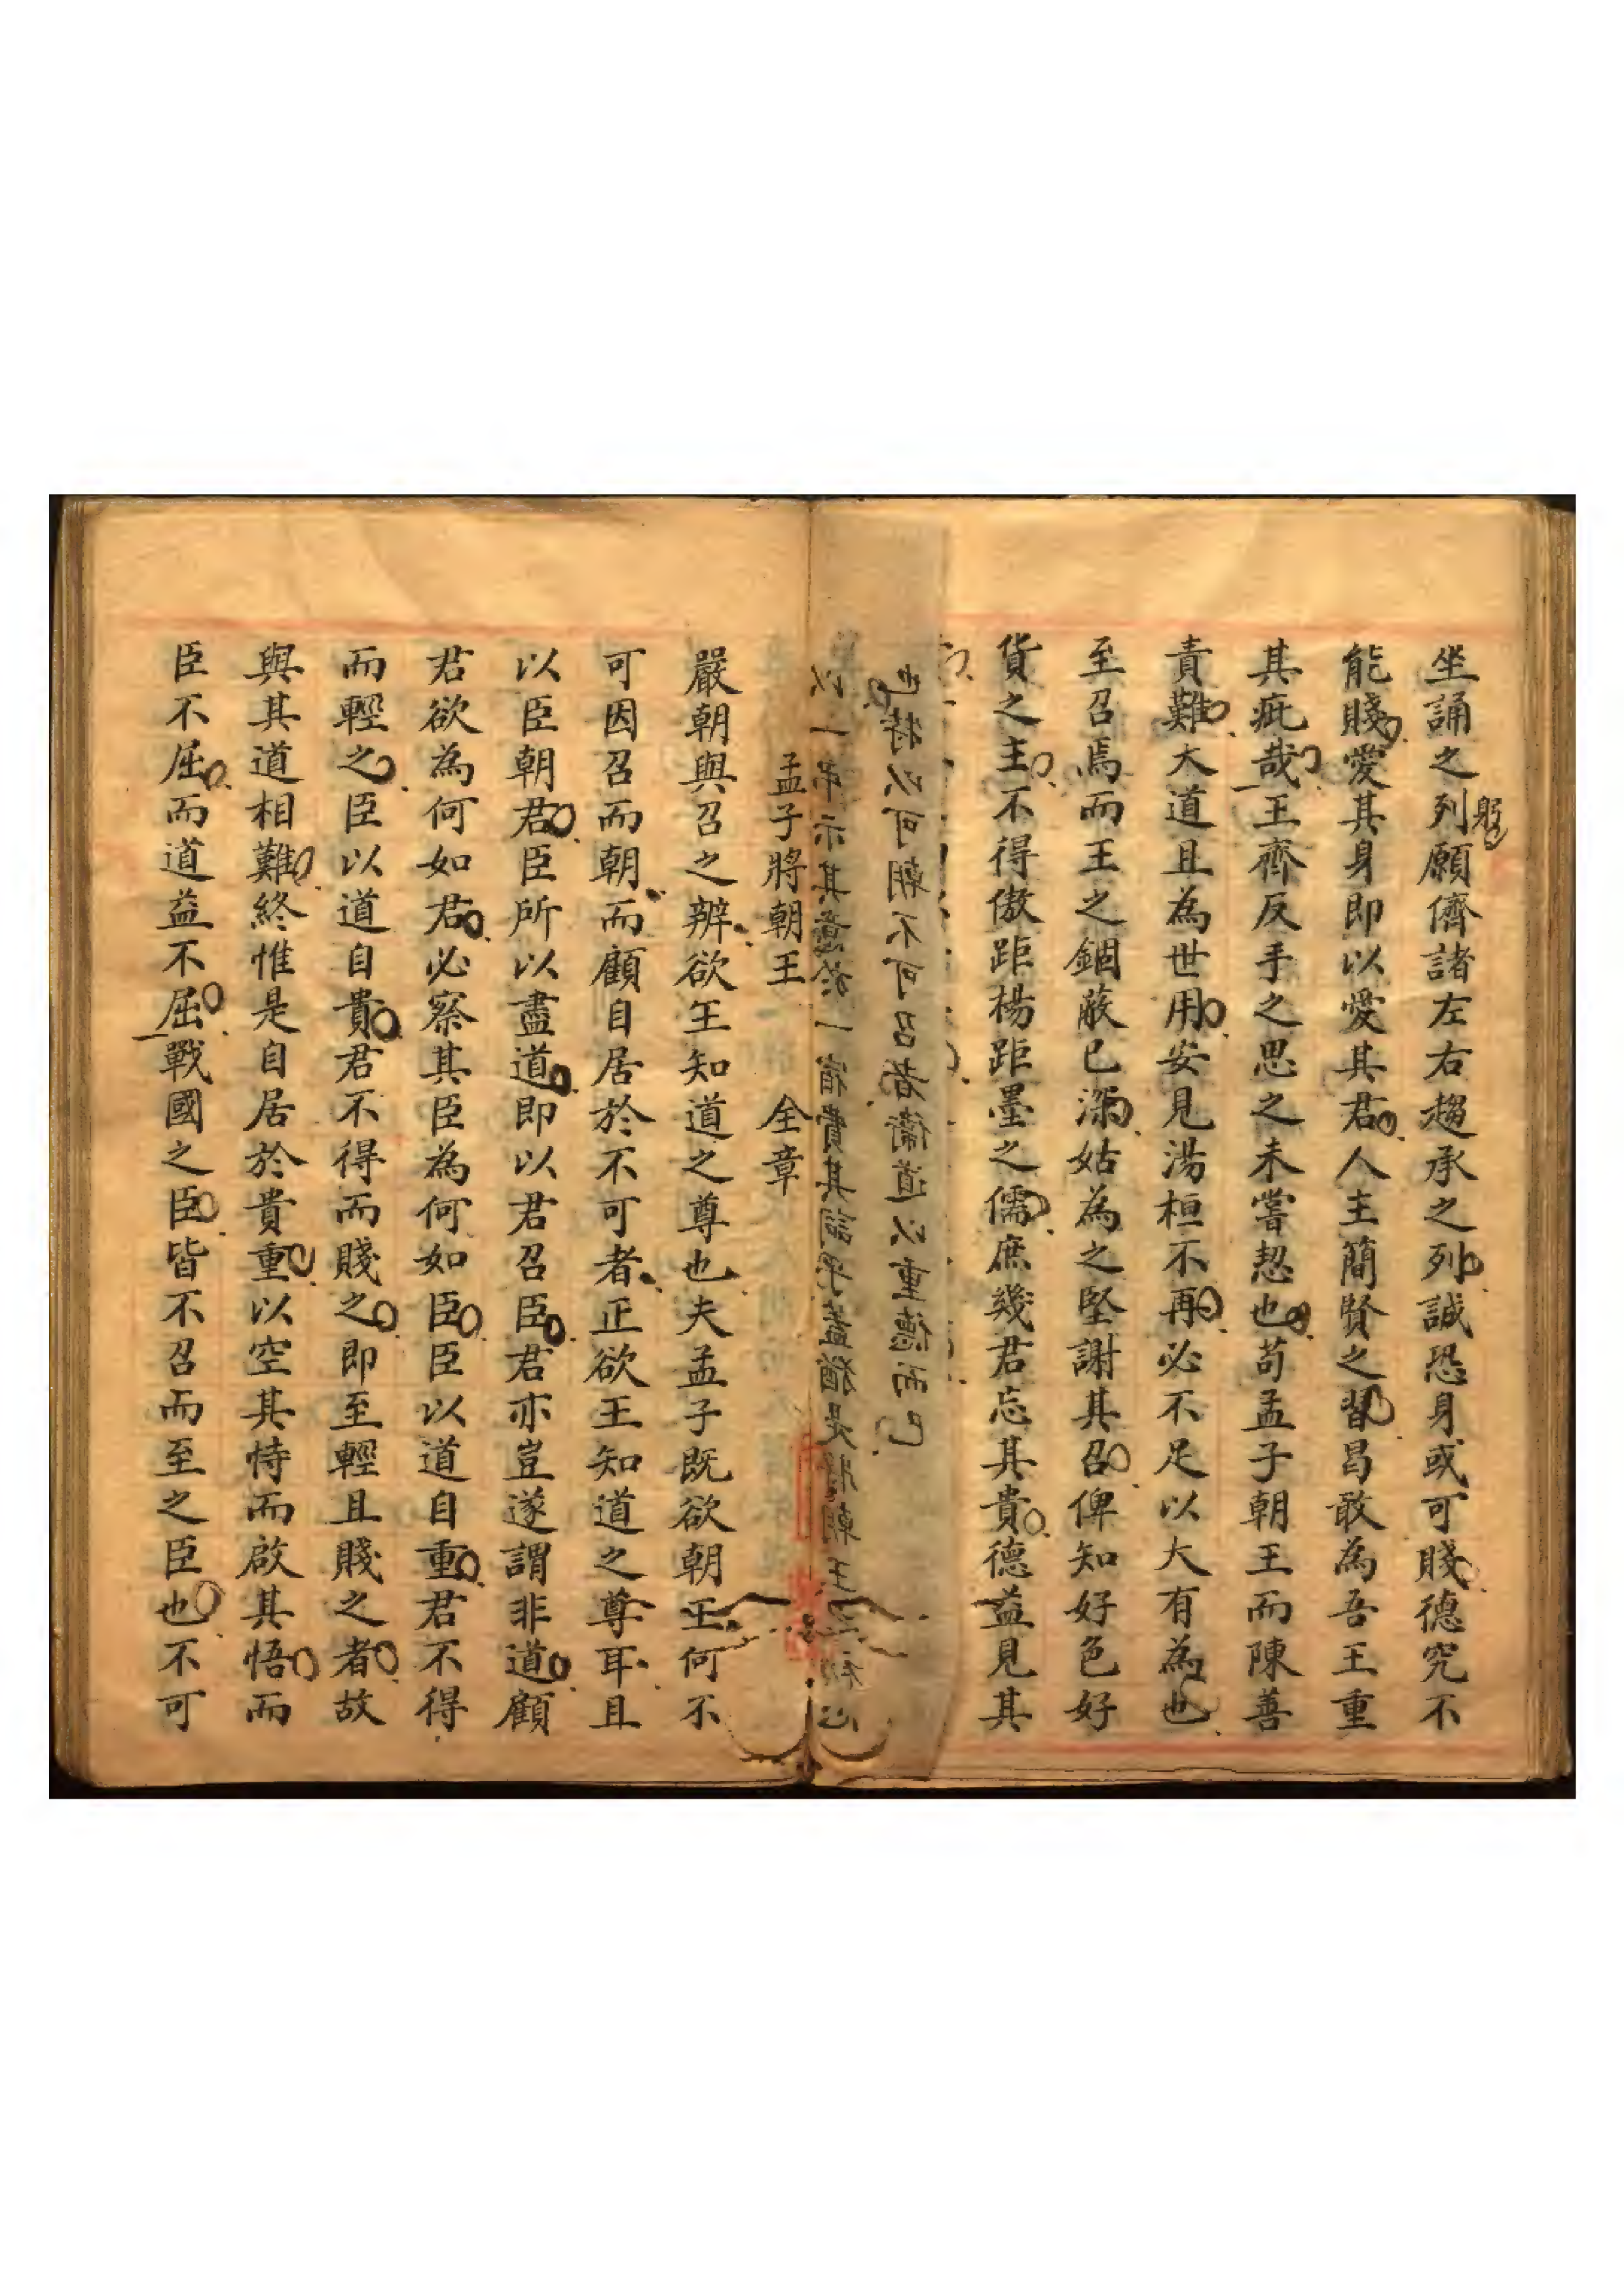 坐誦之列願儕諸左右趨承之列誠恐身或可賤德究不
躬
能賤愛其身即以愛其君人主簡賢之習曷敢為吾王重
其疵哉王齊反手之思之未嘗恝也苟孟子朝王而陳善
責難大道且為世用安見湯桓不再必不足以大有為也
至召焉而王之錮蔽已深姑為之堅謝其召俾知好色好
貨之主不得傲距楊距墨之儒庶幾君忘其貴德益見其
也特以可朝不可召者衛道以重德而已
以一弔示其意於一宿費其詞乎蓋猶是將朝王之初心
孟子將朝王 全章
嚴朝與召之辨欲王知道之尊也夫孟子既欲朝王何不
可因召而朝而顧自居於不可者正欲王知道之尊耳且
以臣朝君臣所以盡道即以君召臣君亦豈遂謂非道顧
君欲為何如君必察其臣為何如臣臣以道自重君不得
而輕之臣以道自貴君不得而賤之即至輕且賤之者故
與其道相難終惟是自居於貴重以空其恃而啟其悟而
臣不屈而道益不屈戰國之臣皆不召而至之臣也不可